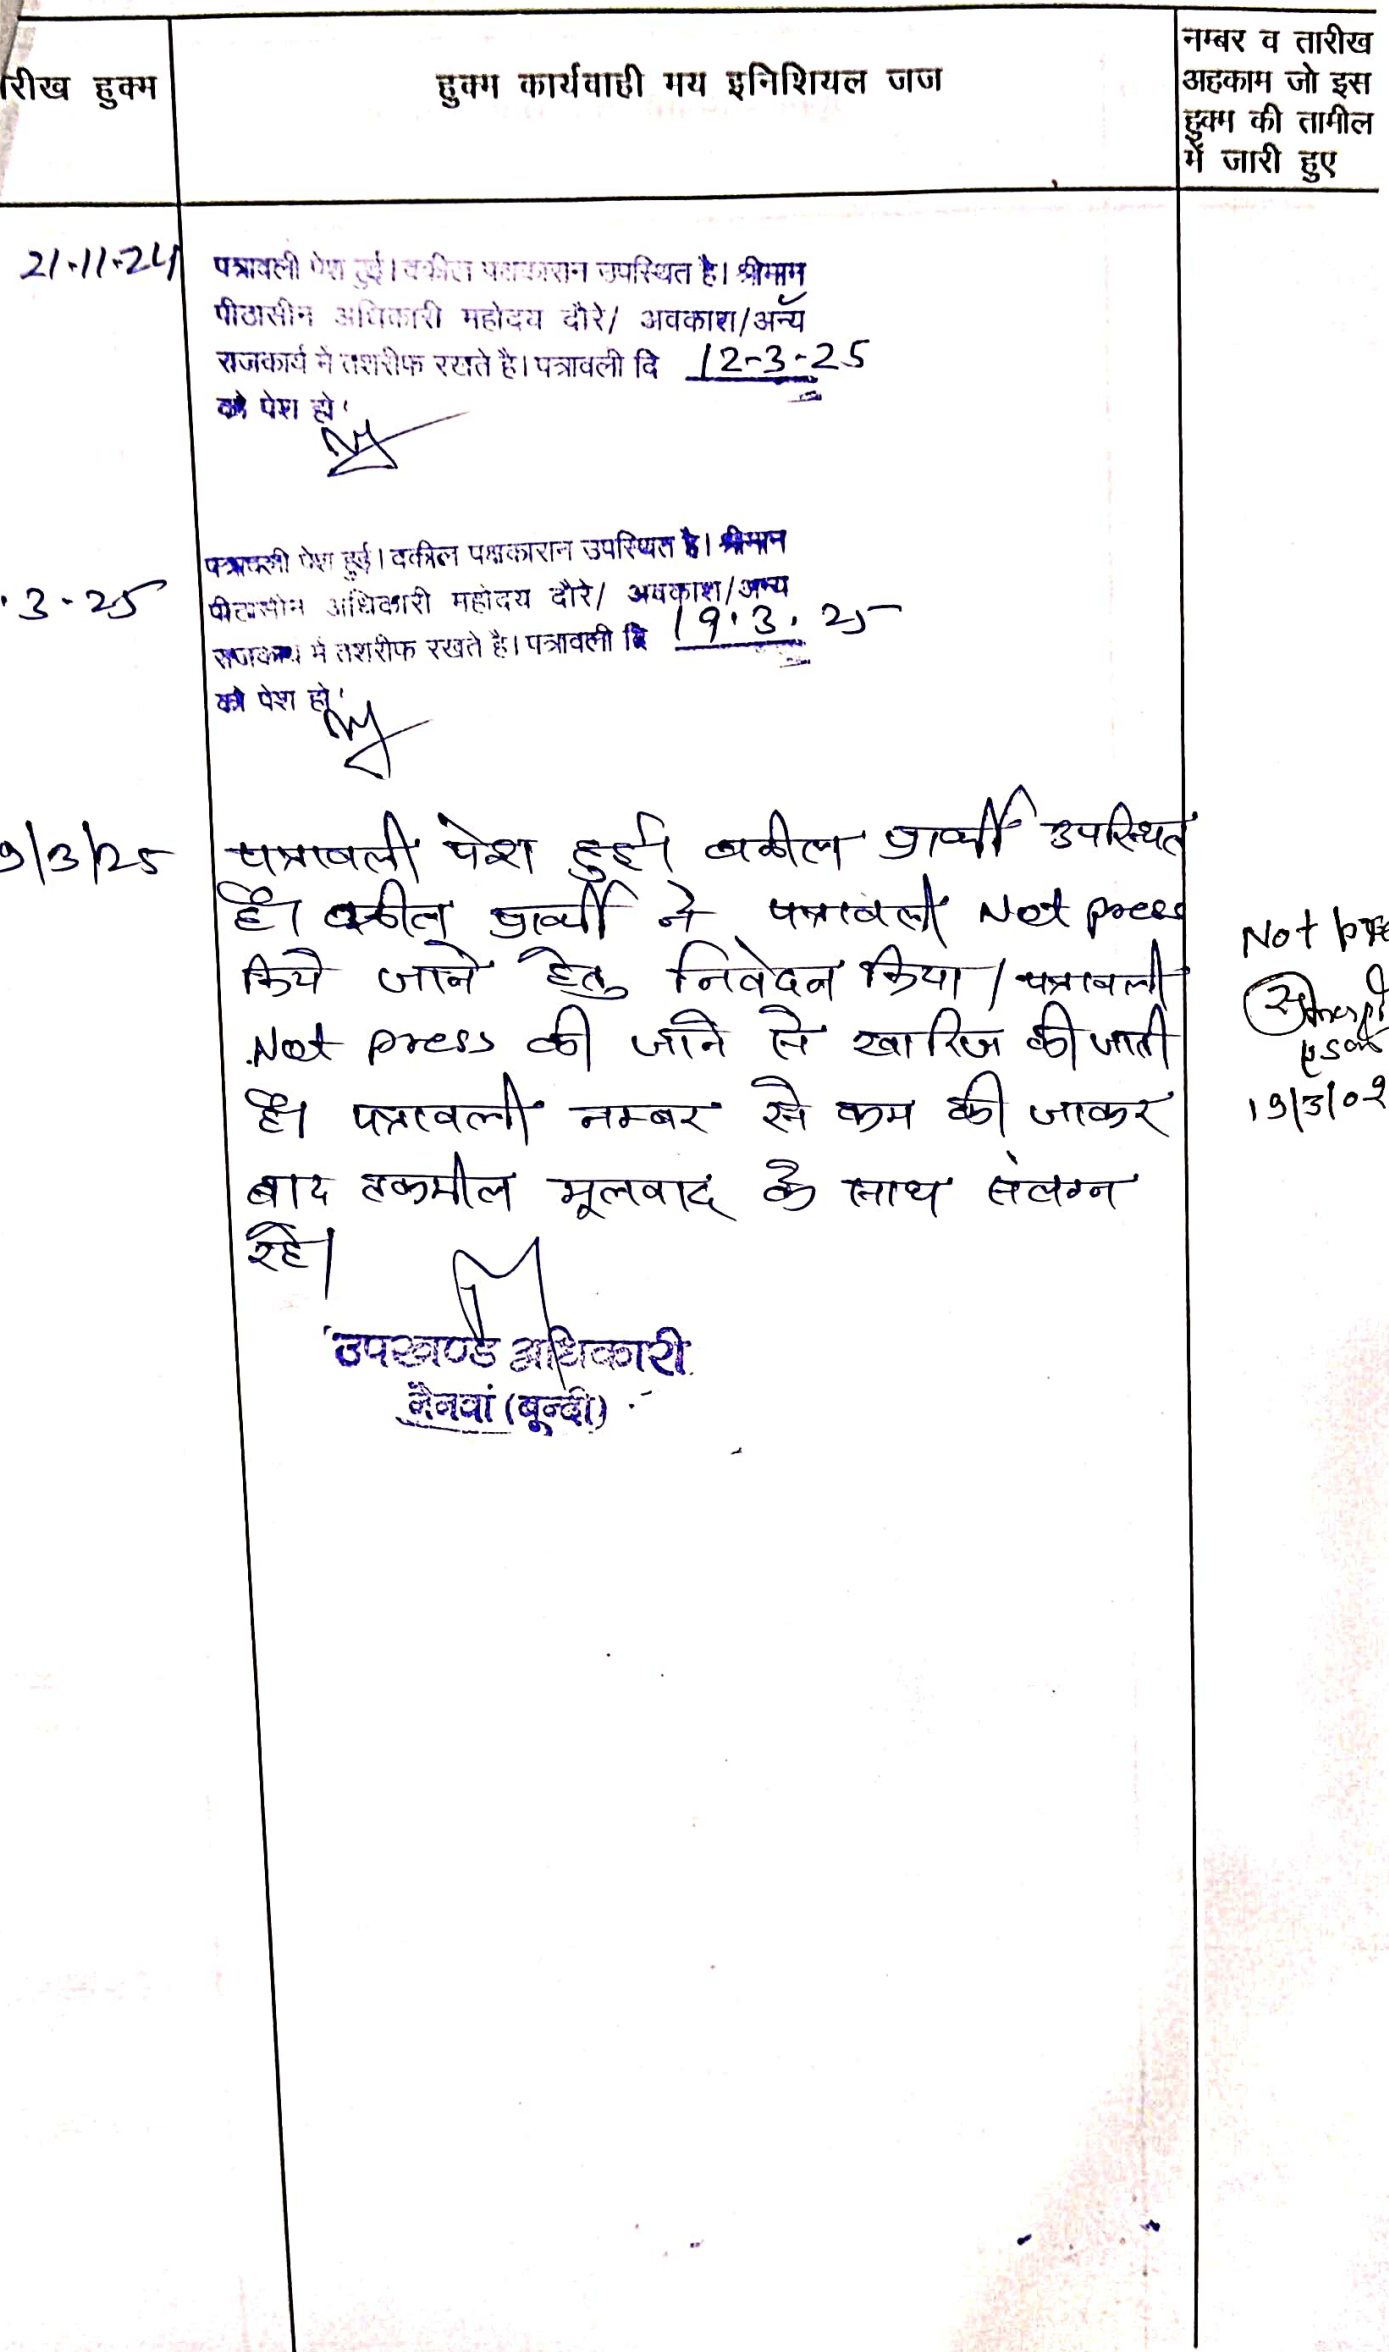 रीख हुक्म
हुक्म कार्यवाही मय इनिशियल जज
नम्बर व तारीख
अहकाम जो इस
हुक्म की तामील
में जारी हुए
21-11-24
पत्रावली पेश हुई। वकील पक्षकारान उपस्थित है। श्रीमान
पीठासीन अधिकारी महोदय दौरे/ अवकाश/अन्य
राजकार्य में तशरीफ रखते है। पत्रावली दि 12-3-25
को पेश हो
पत्रावली पेश हुई। वकील पक्षकारान उपस्थित है। श्रीमान
.3-25
पीठासीन अधिकारी महोदय दौरे/ अवकाश/अन्य
राजकार्य में तशरीफ रखते है। पत्रावली दि 19.3.25
को पेश हो
9/3/25
पत्रावली पेश हुई। वकील प्रार्थी उपस्थित
है। वकील प्रार्थी ने पत्रावली Not press
किये जाने हेतु निवेदन किया। पत्रावली
Not press की जाने से खारिज की जाती
है। पत्रावली नम्बर से कम की जाकर
बाद तकमील मूलवाद के साथ संलग्न
रहे।
Not pre
19/3/02
उपखण्ड अधिकारी
नैनवां (बून्दी)